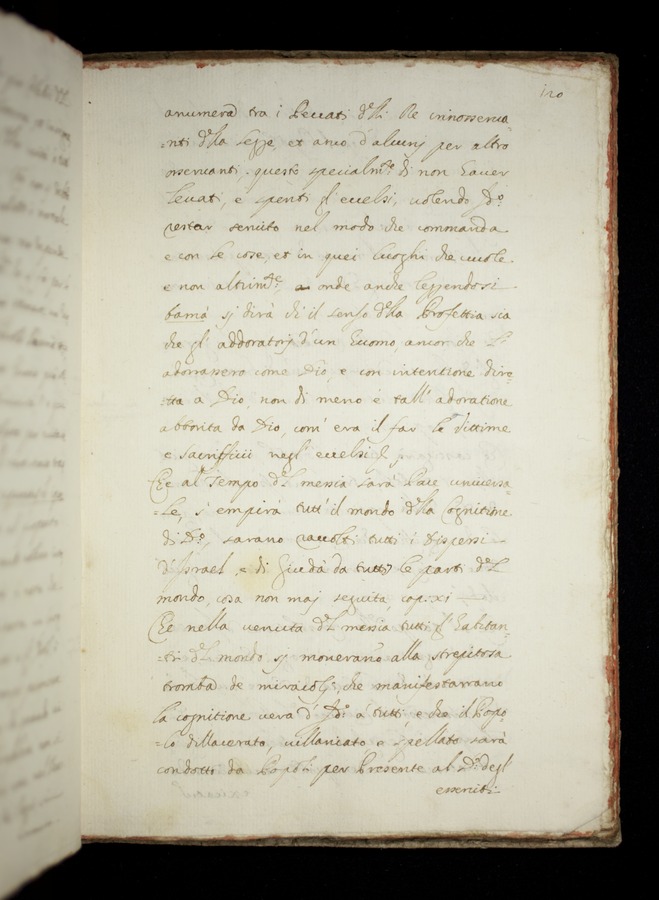 120
anumerad tra i Peccati d'lli Re innosserua
=nti d'lla legge, et anco d'alcunj per altro
osseruanti, questo specialmte di non hauer
leuati, e spenti gl'eccelsi, uolendo Jd.o
restar seruito nel modo che commanda
e con le cose, et in quei luoghi che uuole
e non altrimte, onde anche leggendosi
bamà sj dirà ch'il senso d'lla Profettia sia
che gl'addoratorj d'un huomo, ancor che l'
adorassero come Dio, e con intentione dire=
tta a Dio, non di meno è tall'adoratione
abborita da Dio, com'era il far le Vittime
e Sacrifficii negl'eccelsi
Che al Tempo d'l messia sarà Pace uniuersa
=le, s'empirà tutt'il mondo d'lla Cognitione
di D.o, sarano raccolti tutti i dispersi
d'Israel, e di Giudà da tutte le parti d'l
mondo, cosa non maj seguita, cap. xi
Che nella uenuta d'l messia tutti gl'habitan
=ti d'l mondo sj moueranno alla strepitosa
tromba de miracoli, che manifestarrano
la cognitione uera d'Jd.o à tutti, e che il Popo
=lo dillacerato, uillanicato e spellato sarà
condotto da Popoli per Presente al S.r degl
esserciti